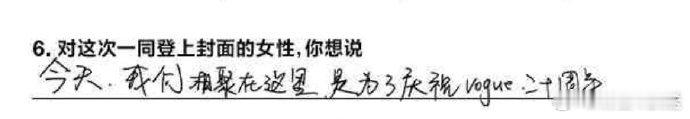 6. 对这次一同登上封面的女性,你想说
今天. 我们相聚在这里.是为了庆祝vogue.二十周年